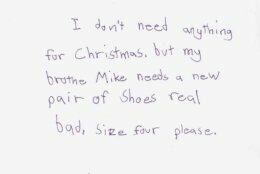 I don't need anything
for Christmas. but my
brothe Mike needs a new
pair of shoes real
bad, size four please.